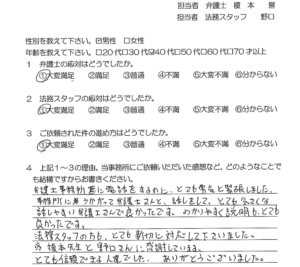 担当者 弁護士 榎本 誉
担当者 法務スタッフ 野口
性別を教えて下さい。☑男性 □女性
年齢を教えて下さい。□20代□30代☑40代□50代□60代□70才以上
1 弁護士の応対はどうでしたか。
①大変満足 ②満足 ③普通 ④不満 ⑤大変不満 ⑥分からない
2 法務スタッフの応対はどうでしたか。
①大変満足 ②満足 ③普通 ④不満 ⑤大変不満 ⑥分からない
3 ご依頼された件の進め方はどうでしたか。
①大変満足 ②満足 ③普通 ④不満 ⑤大変不満 ⑥分からない
4 上記1～3の理由、当事務所にご依頼いただいた感想など、どのようなことで
も結構ですからお書きください。
弁護士事務所に電話をするのに、とても勇気と緊張しました。
事務所に弁護士さんと、話をして、とても気さくな
話しやすい弁護士さんで良かったです。わかりやすく説明もとても
良かったです。
法務スタッフの方も、とても親切に対応して下さいました。
榎本先生と野口さんに感謝しています。
とても信頼できる人達でした。ありがとうございました。